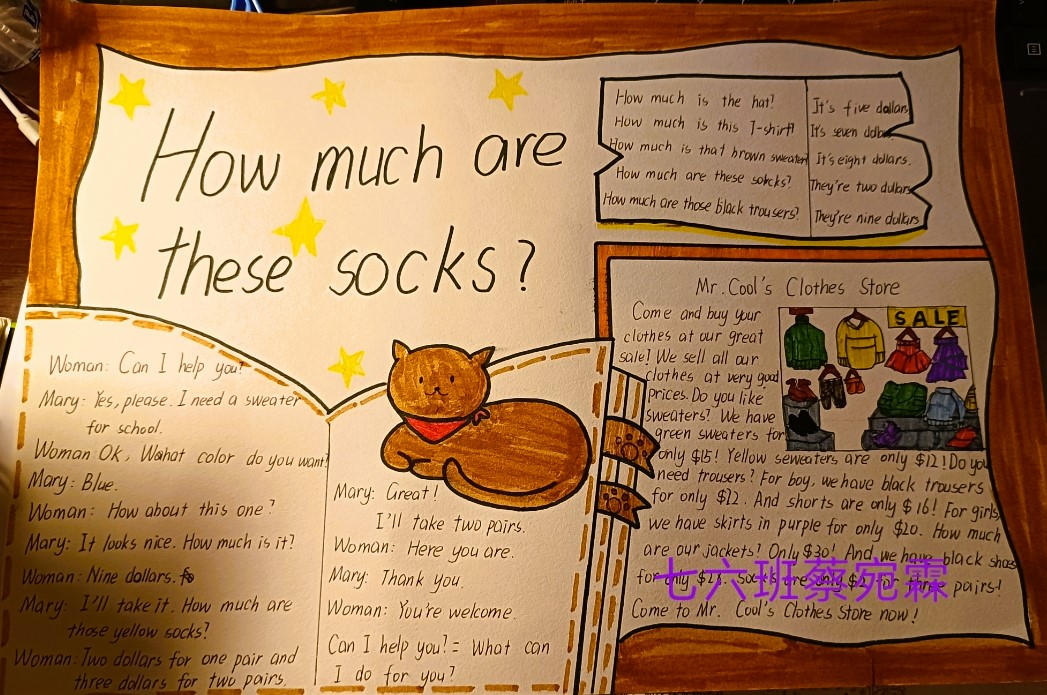 How much are
these socks?
How much is the hat?
It's five dollars
How much is this T-shirt?
It's seven dollars
How much is that brown sweater
It's eight dollars.
How much are these socks?
They're two dullars
How much are those black trousers?
They're nine dullars
Woman: Can I help you?
Mary: Yes, please. I need a sweater
for school.
Woman Ok, What color do you want?
Mary: Blue.
Woman: How about this one?
Mary: It looks nice. How much is it?
Woman: Nine dollars.
Mary: I'll take it. How much are
those yellow socks?
Woman: Two dollars for one pair and
three dollars for two pairs.
Mary: Great!
I'll take two pairs.
Woman: Here you are.
Mary: Thank you.
Woman: You're welcome.
Can I help you? = What can
I do for you?
Mr. Cool's Clothes Store
SALE
Come and buy your
clothes at our great
sale! We sell all our
clothes at very good
prices. Do you like
sweaters? We have
green sweaters for
only $15! Yellow seweaters are only $12! Do you
need trousers? For boy, we have black trousers
for only $22. And shorts are only $16! For girls,
we have skirts in purple for only $20. How much
are our jackets? Only $30! And we have black shoes
for only Socks are only for three pairs!
Come to Mr. Cool's Clothes Store now!
七六班蔡宛霖